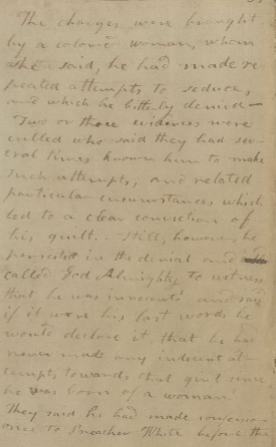 The charges were brought
by a colored woman, whom
she said, he had made re
peated attempts to seduce,
and which he bitterly denied—
Two or three evidences were
called who said they had sev
eral times known him to make
such attempts, and related
particular circumstances which
led to a clear conviction of
his guilt. Still, however, he
persisted in the denial and
called God Almighty to witness
that he was innocent and said
if it were his last words he
would declare it that he had
never made any indecent at
tempts towards that girl since
he was born of a woman
They said he had made
ones to Preacher White before the